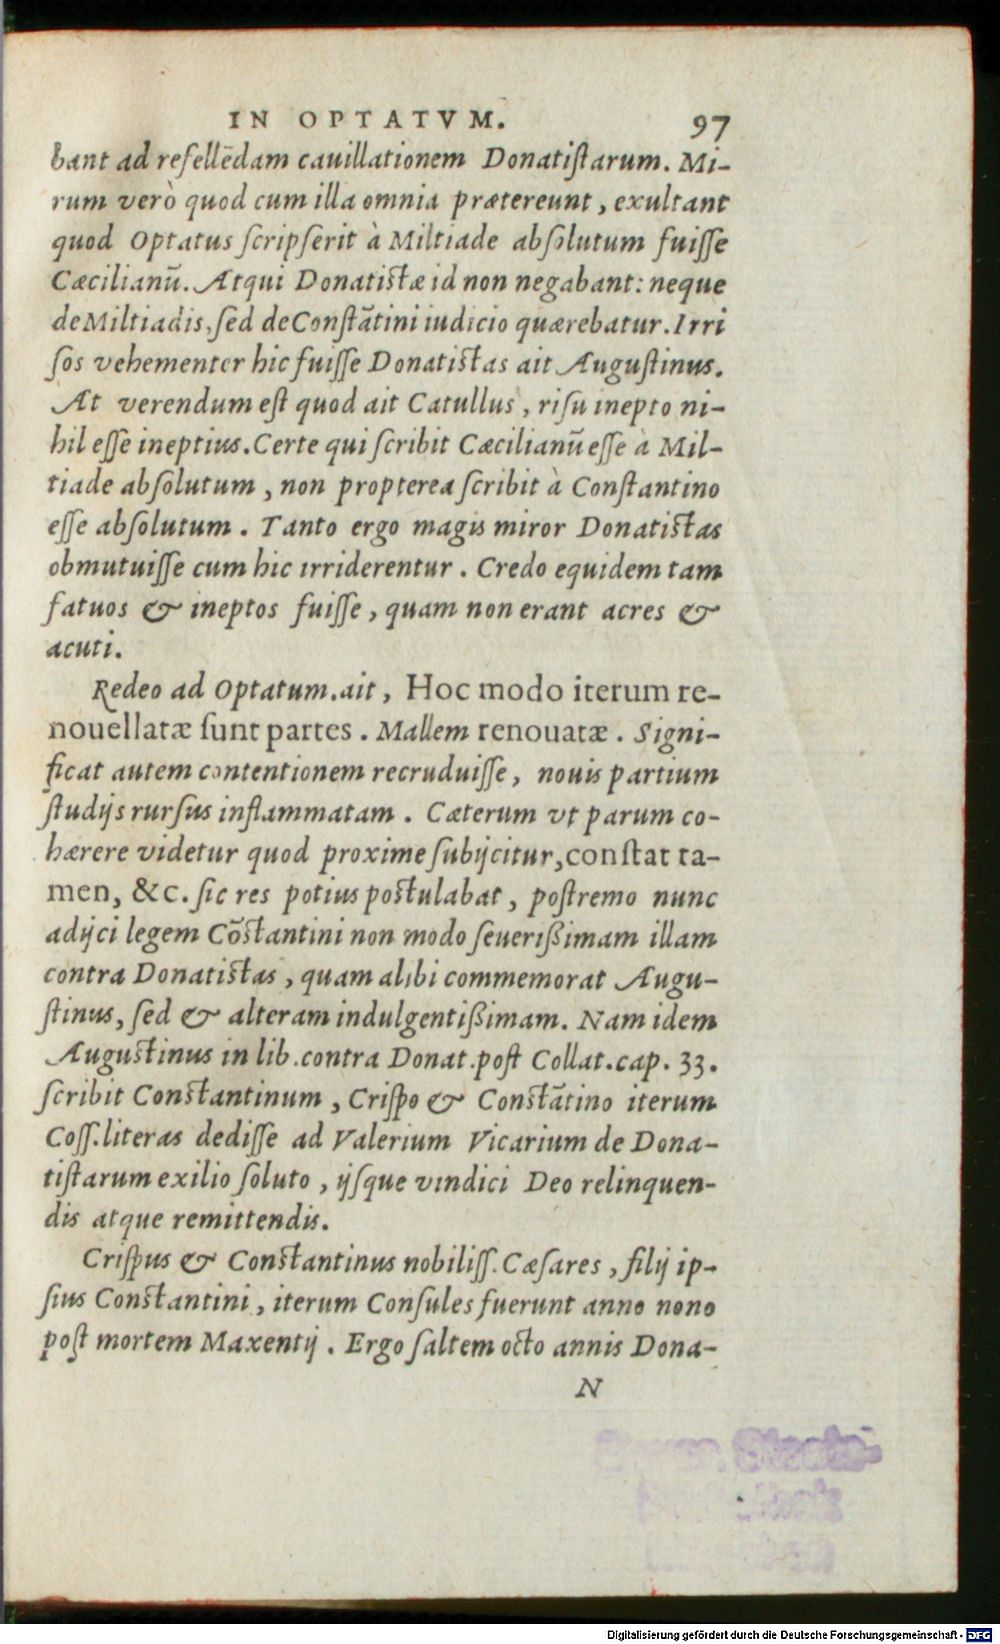 IN OPTATVM. 97
bant ad refellēdam cauillationem Donatiſtarum. Mi-
rum verò quod cum illa omnia prætereunt, exultant
quod Optatus ſcripſerit à Miltiade abſolutum fuiſſe
Cæcilianū. Atqui Donatiſtæ id non negabant: neque
de Miltiadis, ſed de Conſtātini iudicio quærebatur. Irri
ſos vehementer hic fuiſſe Donatiſtas ait Auguſtinus.
At verendum eſt quod ait Catullus, riſu inepto ni-
hil eſſe ineptius. Certe qui ſcribit Cæcilianū eſſe à Mil-
tiade abſolutum, non propterea ſcribit à Conſtantino
eſſe abſolutum. Tanto ergo magis miror Donatiſtas
obmutuiſſe cum hic irriderentur. Credo equidem tam
fatuos & ineptos fuiſſe, quam non erant acres &
acuti.
Redeo ad Optatum. ait, Hoc modo iterum re-
nouellatæ ſunt partes. Mallem renouatæ. Signi-
ficat autem contentionem recruduiſſe, nouis partium
ſtudijs rurſus inflammatam. Cæterum vt parum co-
hærere videtur quod proxime ſubijcitur, conſtat ta-
men, &c. ſic res potius poſtulabat, poſtremo nunc
adijci legem Cōſtantini non modo ſeuerißimam illam
contra Donatiſtas, quam alibi commemorat Augu-
ſtinus, ſed & alteram indulgentißimam. Nam idem
Auguſtinus in lib. contra Donat. poſt Collat. cap. 33.
ſcribit Conſtantinum, Criſpo & Conſtātino iterum
Coſſ. literas dediſſe ad Valerium Vicarium de Dona-
tiſtarum exilio ſoluto, ijſque vindici Deo relinquen-
dis atque remittendis.
Criſpus & Conſtantinus nobiliſſ. Cæſares, filij ip-
ſius Conſtantini, iterum Conſules fuerunt anno nono
poſt mortem Maxentij. Ergo ſaltem octo annis Dona-
N
Digitalisierung gefördert durch die Deutsche Forschungsgemeinschaft - DFG